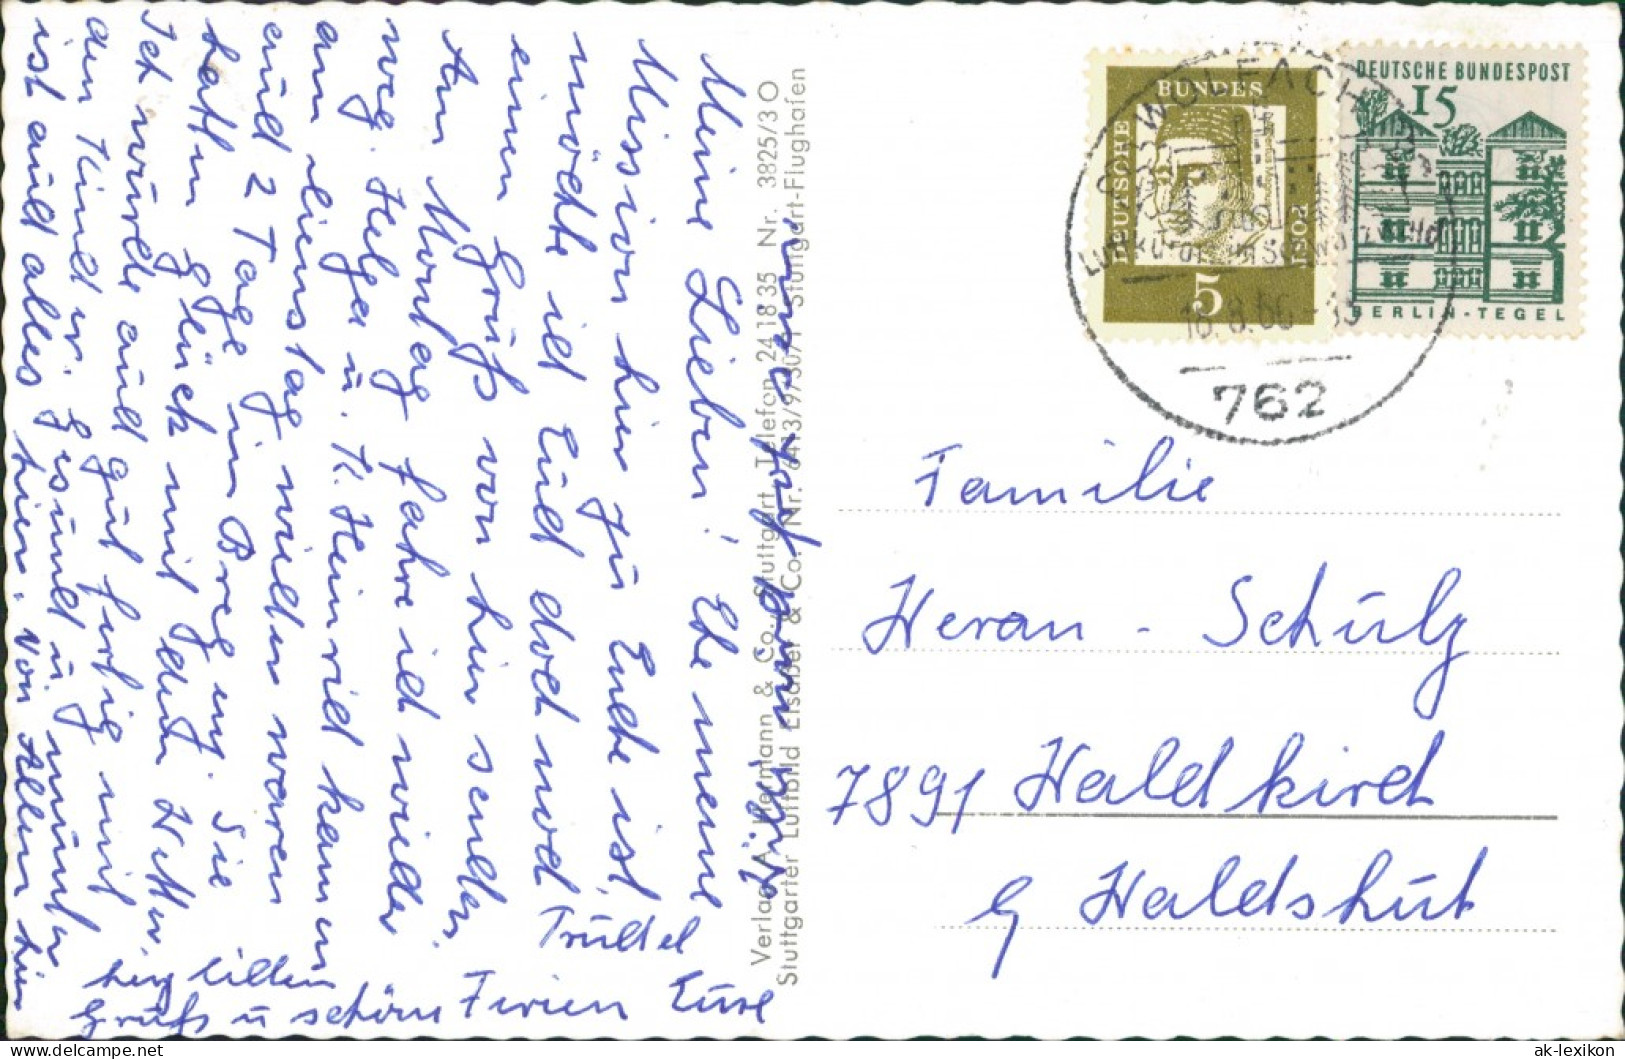 Meine Lieben! Ehe meine
Mission hier zu Ende ist,
möchte ich Euch doch noch
einen Gruß von hier senden.
Am Montag fahre ich wieder
weg. Helga u. K. Heinrich kamen
am Dienstag wieder waren
auch 2 Tage in Bregenz. Sie
hatten Glück mit dem Wetter.
Ich wurde auch gut fertig mit
den Kinder. Gesund u. munter
ist auch alles hier. Von Allen hier
herzlichen
Grüße u schöne Ferien Eure
Trudel
Verlag A. Herrmann & Co., Stuttgart Telefon 24 18 35 Nr. 3825/3 O
Stuttgarter Luftbild Elsäßer & Co. Nr. 6413/9730/1 Stuttgart-Flughafen
DEUTSCHE BUNDESPOST
5
DEUTSCHE BUNDESPOST
15
BERLIN-TEGEL
WOLFACH
Luftkurort im Schwarzwald
18.8.66
762
Familie
Heran - Schulz
7891 Waldkirch
b Waldshut
ak-lexikon